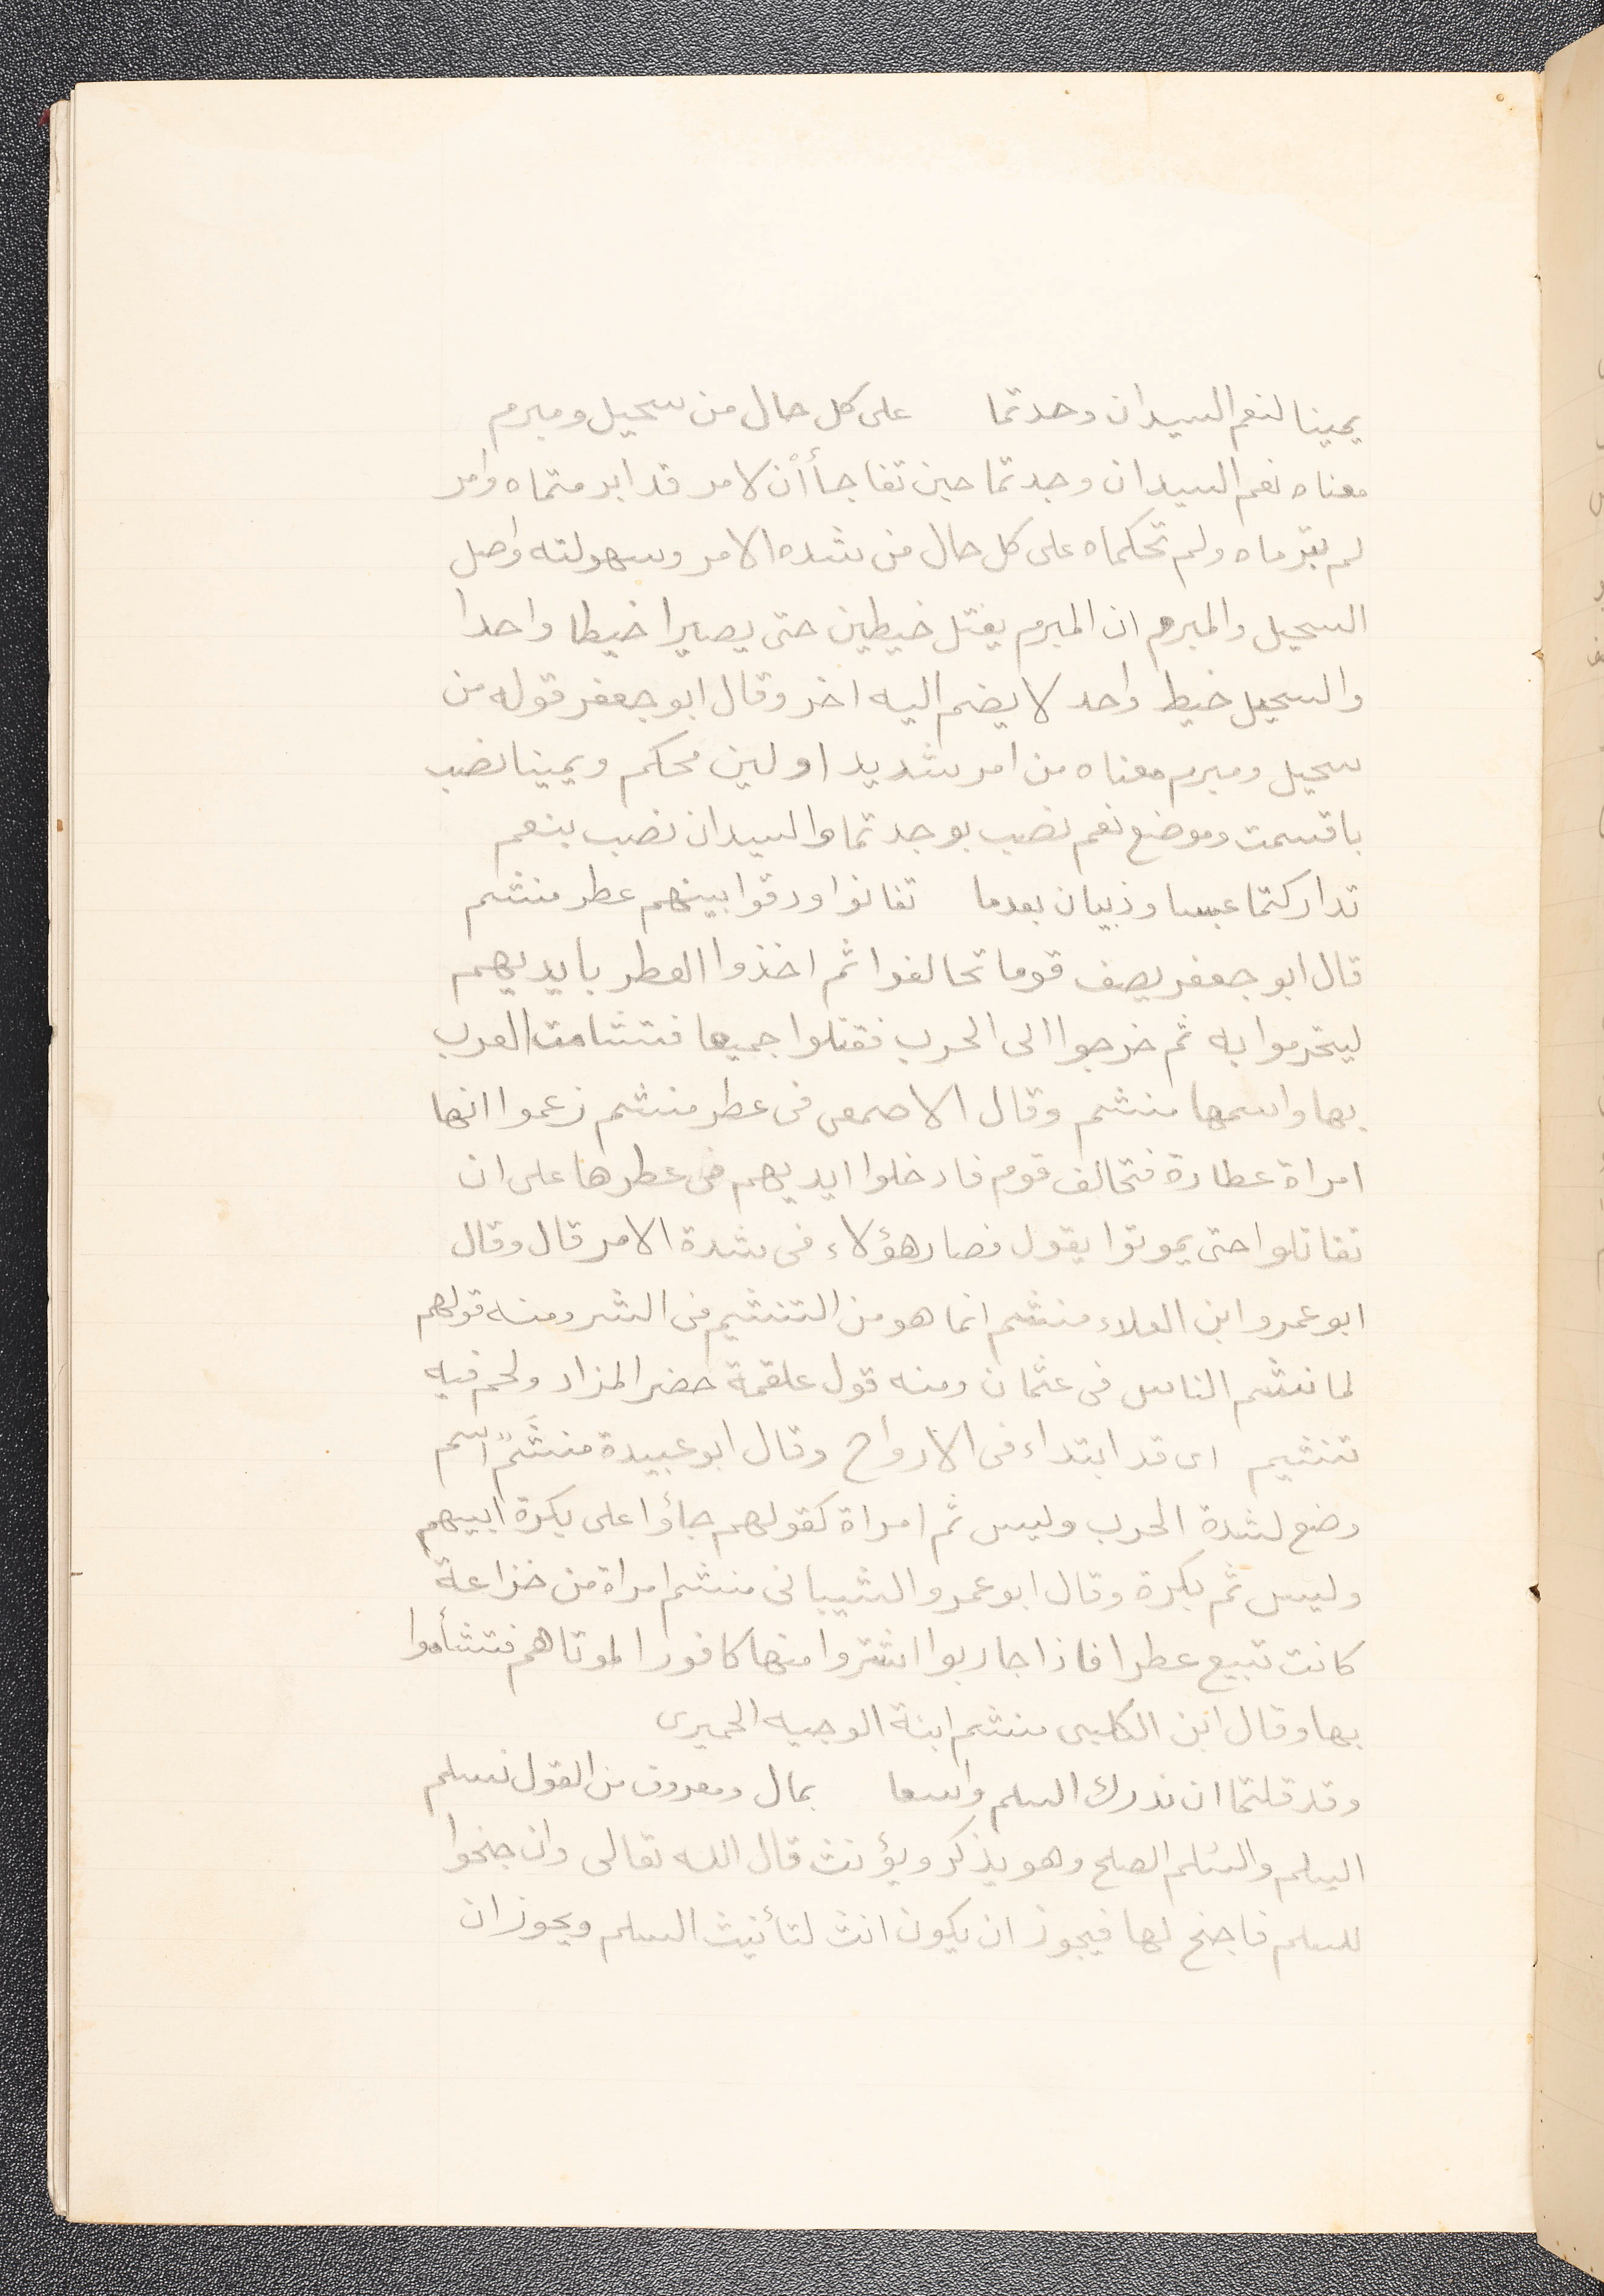 يمينا لنعم السيدان وحدتما على كل حال من سحيل ومبرم
معناه نعم السيدان وجدتما حين تفاجأ أن لامر قد ابرمتماه وامر
لم تبرماه ولم تحكماه على كل حال من شده الامر وسهولته واصل
السحيل والمبرم ان المبرم يفتل خيطين حتى يصيرا خيطا واحدا
والسحيل خيط واحد لا يضم اليه اخر وقال ابو جعفر قوله من
سحيل ومبرم معناه من امر شديد او لين محكم ويمينا نصب
باقسمت وموضع نعم نصب بوجدتما والسيدان نصب بنعم
تداركتما عبسا وذبيان بعدما تفانوا ودقوا بينهم عطر منشم
قال ابو جعفر يصف قوما تحالفوا ثم اخذوا العطر بايديهم
ليتحرموا به ثم خرجوا الى الحرب فقتلوا جميعا فتشامت العرب
بها واسمها منشم وقال الاصمعى فى عطر منشم زعموا انها
امراة عطارة فتحالف قوم فادخلوا ايديهم فى عطرها على ان
تقاتلوا حتى يموتوا يقول فصار هؤلاء فى شدة الامر قال وقال
ابو عمرو ابن العلاء منشم انما هو من التنشيم فى الشر ومنه قولهم
لما نشم الناس فى عثمان ومنه قول علقمة حضر المزاد ولحم فيه
تنشيم اى قد ابتداء فى الارواح وقال ابو عبيدة منشَمً اسم
وضع لشدة الحرب وليس ثم امراة كقولهم جاؤا على بكرة ابيهم
وليس ثم بكرة وقال ابو عمرو الشيبانى منشم امراة من خزاعة
كانت تبيع عطرا فاذا حاربوا اشتروا منها كافورا لموتاهم فتشأموا
بها وقال ابن الكلبى منشم ابنة الوجيه الحميرى
وقد قلتما ان ندرك السلم واسعا بمال ومعروف من القول نسلم
السلم والسلم الصلح وهو يذكر ويؤنث قال الله تعالى وان جنحوا
للسلم فاجنح لها فيجوز ان يكون انث لتأنيث السلم ويجوز ان